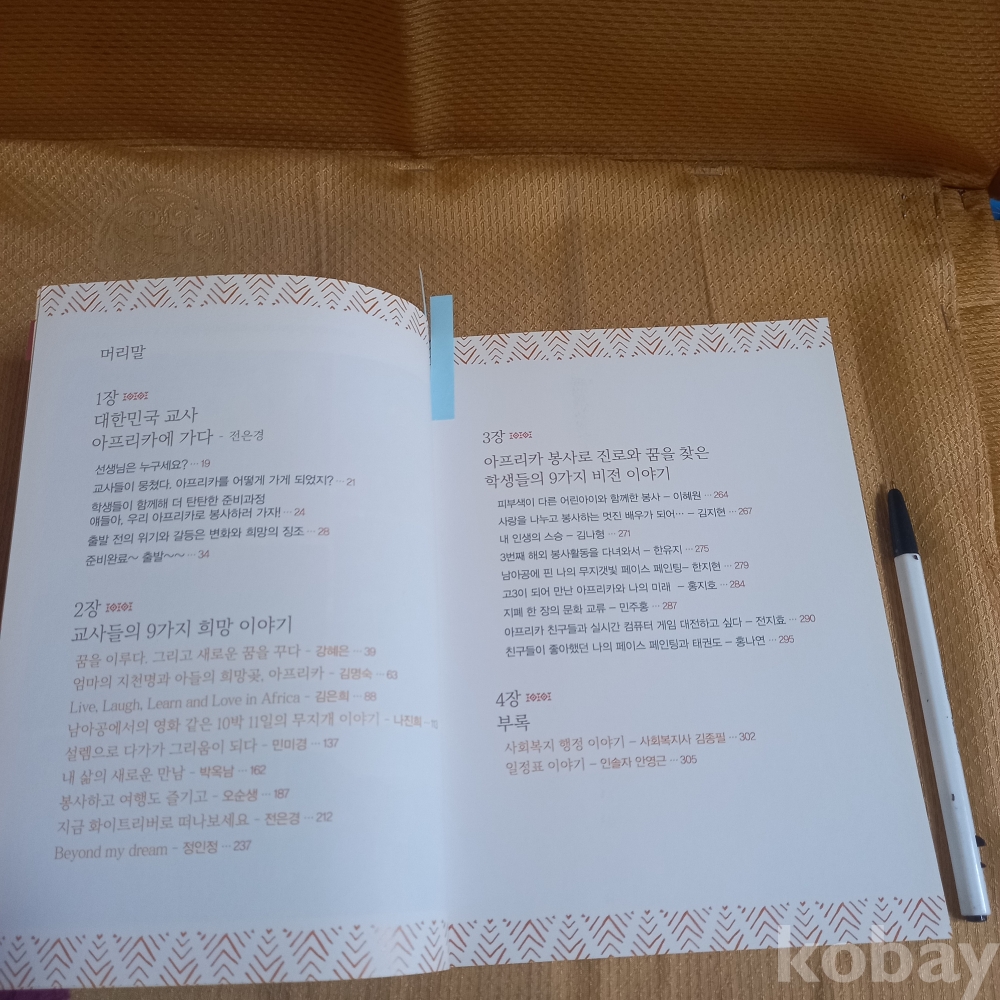 머리말
1장
대한민국 교사
아프리카에 가다 - 전은경
선생님은 누구세요? ··· 19
교사들이 뭉쳤다. 아프리카를 어떻게 가게 되었지? ··· 21
학생들이 함께해 더 탄탄한 준비과정
얘들아, 우리 아프리카로 봉사하러 가자! ··· 24
출발 전의 위기와 갈등은 변화와 희망의 징조 ··· 28
준비완료~ 출발~~ ··· 34
2장
교사들의 9가지 희망 이야기
꿈을 이루다. 그리고 새로운 꿈을 꾸다 - 강혜은 ··· 39
엄마의 지천명과 아들의 희망곶, 아프리카 - 김명숙 ··· 63
Live, Laugh, Learn and Love in Africa - 김은희 ··· 88
남아공에서의 영화 같은 10박 11일의 무지개 이야기 - 나진희
설렘으로 다가가 그리움이 되다 - 민미경 ··· 137
내 삶의 새로운 만남 - 박옥남 ··· 162
봉사하고 여행도 즐기고 - 오순생 ··· 187
지금 화이트리버로 떠나보세요 - 전은경 ··· 212
Beyond my dream - 정인정 ··· 237
3장
아프리카 봉사로 진로와 꿈을 찾은
학생들의 9가지 비전 이야기
피부색이 다른 어린아이와 함께한 봉사 - 이혜원 ··· 264
사랑을 나누고 봉사하는 멋진 배우가 되어··· - 김지현 ··· 267
내 인생의 스승 - 김나형 ··· 271
3번째 해외 봉사활동을 다녀와서 - 한유지 ··· 275
남아공에 핀 나의 무지갯빛 페이스 페인팅- 한지현 ··· 279
고3이 되어 만난 아프리카와 나의 미래 - 홍지호 ··· 284
지폐 한 장의 문화 교류 - 민주홍 ··· 287
아프리카 친구들과 실시간 컴퓨터 게임 대전하고 싶다 - 전지효 ··· 290
친구들이 좋아했던 나의 페이스 페인팅과 태권도 - 홍나연 ··· 295
4장
부록
사회복지 행정 이야기 - 사회복지사 김종필 ··· 302
일정표 이야기 - 인솔자 안영근 ··· 305
kobay